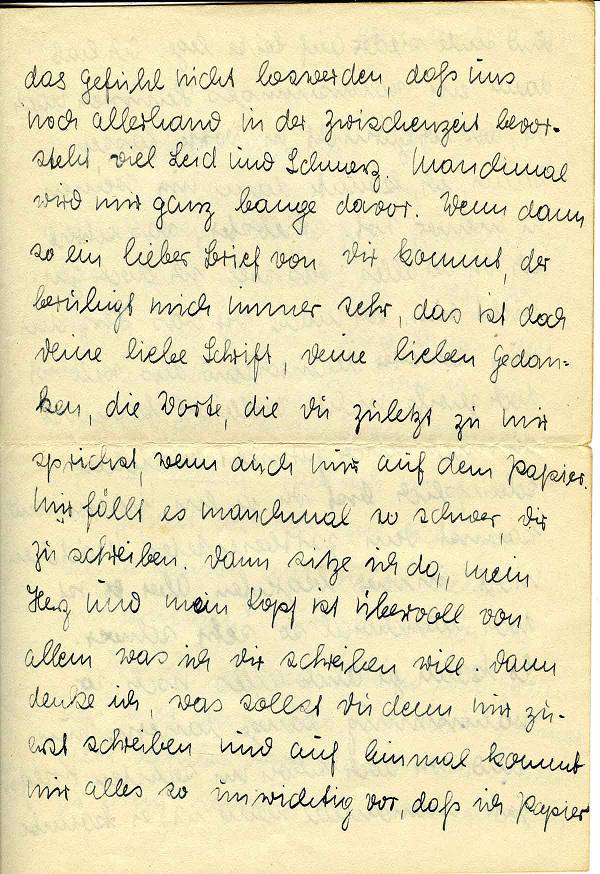 das Gefühl nicht loswerden, daß uns
noch allerhand in der Zwischenzeit bevor-
steht, viel Leid und Schmerz. Manchmal
wird mir ganz bange davor. Wenn dann
so ein lieber Brief von Dir kommt, der
beruhigt mich immer sehr, das ist doch
Deine liebe Schrift, Deine lieben Gedan-
ken, die Worte, die Du zuletzt zu mir
sprichst, wenn auch nur auf dem Papier.
Mir fällt es manchmal so schwer, Dir
zu schreiben. Dann sitze ich da, mein
Herz und mein Kopf ist übervoll von
allem was ich Dir schreiben will. Dann
denke ich, was sollst Du denn nur zu-
erst schreiben und auf einmal kommt
mir alles so unwichtig vor, daß ich Papier